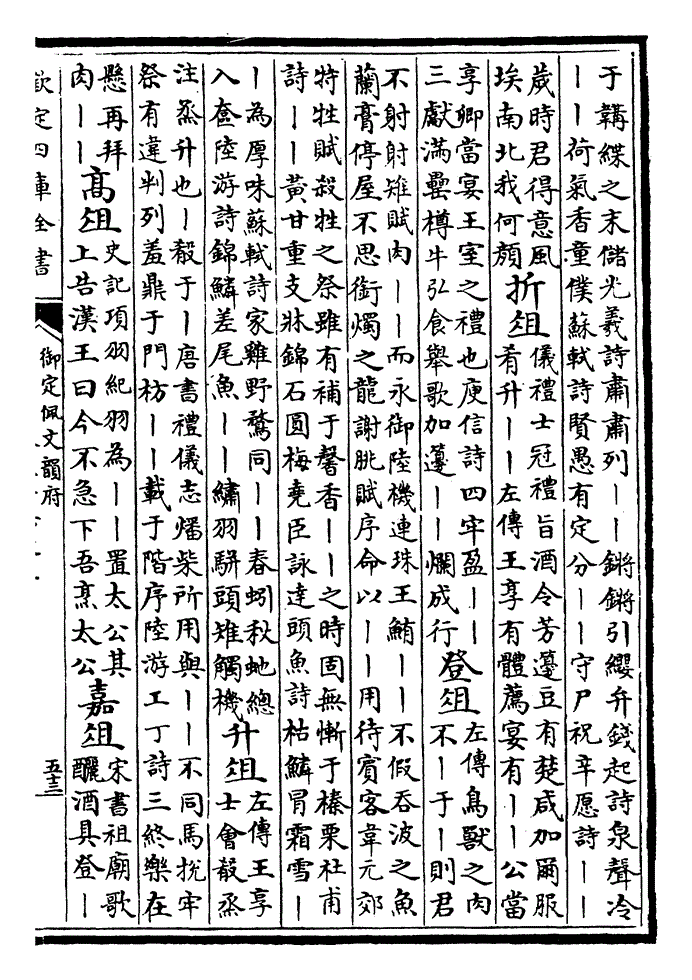 于韝緤之末儲光羲詩肅肅列丨丨鏘鏘引纓弁錢起詩泉聲冷
丨丨荷氣香童僕蘇軾詩賢愚有定分丨丨守尸祝辛愿詩丨丨
歲時君得意風
埃南北我何顔
折俎
儀禮士冠禮旨酒令芳籩豆有楚咸加爾服
肴升丨丨左傳王享有體薦宴有丨丨公當
享卿當宴王室之禮也庾信詩四牢盈丨丨
三獻滿罍樽牛弘食舉歌加籩丨丨爛成行
登俎
左傳鳥獸之肉
不丨于丨則君
不射射雉賦肉丨丨而永御陸機連珠王鮪丨丨不假吞波之魚
蘭膏停屋不思銜燭之龍謝朓賦序命以丨丨用待賓客韋元郊
特牲賦殺牲之祭雖有補于馨香丨丨之時固無慚于榛栗杜甫
詩丨丨黃甘重支牀錦石圓梅堯臣詠達頭魚詩枯鱗冒霜雪丨
丨為厚味蘇軾詩家雞野鶩同丨丨春蚓秋虵總
入奩陸游詩錦鱗差尾魚丨丨繡羽駢頭雉觸機
升俎
左傳王享
士會殽烝
注烝升也丨殽于丨唐書禮儀志燔柴所用與丨丨不同馬捝牢
祭有違判列羞鼎于門枋丨丨載于階序陸游工丁詩三終樂在
懸再拜
肉丨丨
高俎
史記項羽紀羽為丨丨置太公其
上告漢王曰今不急下吾烹太公
嘉俎
宋書祖廟歌
釃酒具登丨
欽定四庫全書
御定佩文韻府
五十三